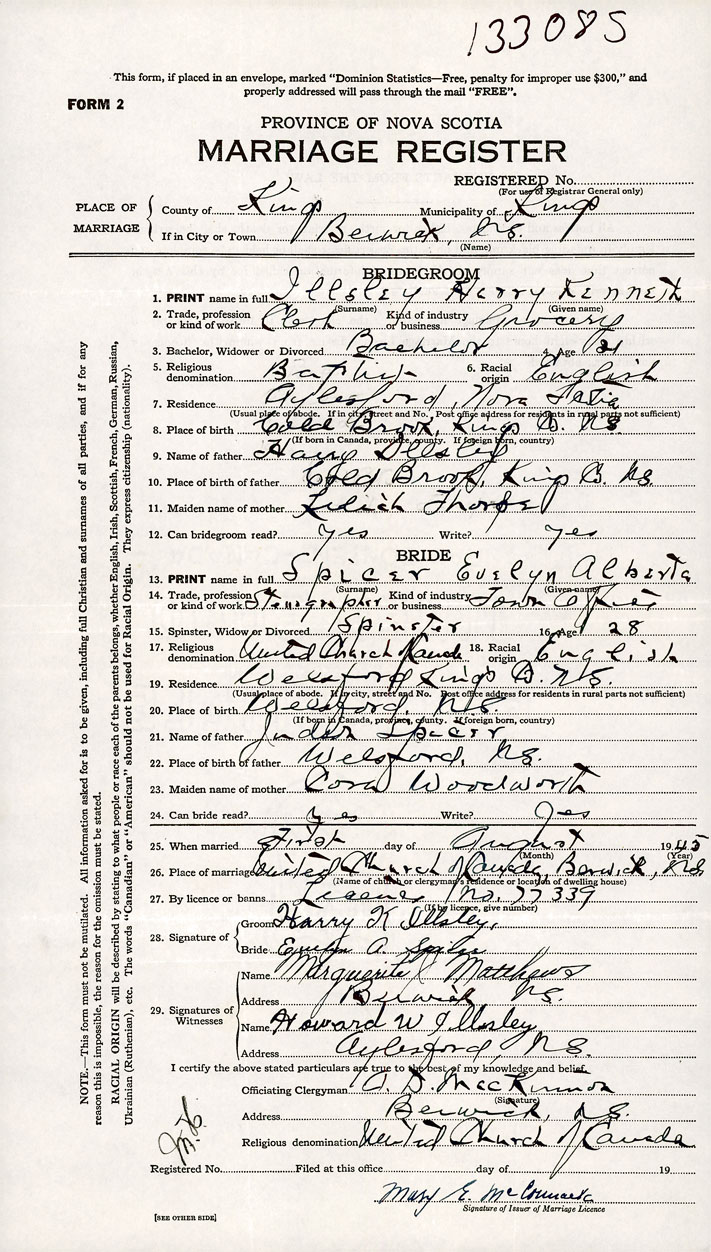 133085
This form, if placed in an envelope, marked "Dominion Statistics—Free, penalty for improper use $300," and
properly addressed will pass through the mail "FREE".
FORM 2
PROVINCE OF NOVA SCOTIA
MARRIAGE REGISTER
REGISTERED No.
(For use of Registrar General only)
PLACE OF MARRIAGE
County of Kings Municipality of Kings
If in City or Town Berwick, N.S.
(Name)
BRIDEGROOM
1. PRINT name in full Illsley Harry Kenneth
(Surname) (Given name)
2. Trade, profession or kind of work Clerk Kind of industry or business Grocery
3. Bachelor, Widower or Divorced Bachelor 4. Age 31
5. Religious denomination Baptist 6. Racial origin English
7. Residence Aylesford, Nova Scotia
(Usual place of abode. If in city street and No. Post office address for residents in rural parts not sufficient)
8. Place of birth Cold Brook, Kings Co. N.S.
(If born in Canada, province, county. If foreign born, country)
9. Name of father Harry Illsley
10. Place of birth of father Cold Brook, Kings Co. N.S.
11. Maiden name of mother Thorpe
12. Can bridegroom read? Yes Write? Yes
BRIDE
13. PRINT name in full Spicer Evelyn Alberta
(Surname) (Given name)
14. Trade, profession or kind of work Stenographer Kind of industry or business Town Office
15. Spinster, Widow or Divorced Spinster 16. Age 28
17. Religious denomination United Church of Canada 18. Racial origin English
19. Residence Welsford Kings Co. N.S.
(Usual place of abode. If in city, street and No. Post office address for residents in rural parts not sufficient)
20. Place of birth Welsford, N.S.
(If born in Canada, province, county. If foreign born, country)
21. Name of father Spicer
22. Place of birth of father Welsford, N.S.
23. Maiden name of mother Cora Woodworth
24. Can bride read? Yes Write? Yes
25. When married First day of August 1945
(Month) (Year)
26. Place of marriage United Church of Canada, Berwick, N.S.
(Name of church or clergyman's residence or location of dwelling house)
27. By licence or banns License No. 77339
(If by licence, give number)
28. Signature of
Groom Harry K Illsley.
Bride Evelyn A. Spicer
29. Signatures of Witnesses
Name Marguerite Matthews
Address Berwick N.S.
Name Howard W Illsley
Address Aylesford, N.S.
I certify the above stated particulars are true to the best of my knowledge and belief.
Officiating Clergyman A. D. MacKinnon
(Signature)
Address Berwick, N.S.
Religious denomination United Church of Canada
Registered No. Filed at this office day of 19
Mary E. McConnell
Signature of Issuer of Marriage Licence
[SEE OTHER SIDE]
NOTE.—This form must not be mutilated. All information asked for is to be given, including full Christian and surnames of all parties, and if for any
reason this is impossible, the reason for the omission must be stated.
RACIAL ORIGIN will be described by stating to what people or race each of the parents belongs, whether English, Irish, Scottish, French, German, Russian,
Ukrainian (Ruthenian), etc. The words "Canadian" or "American" should not be used for Racial Origin. They express citizenship (nationality).